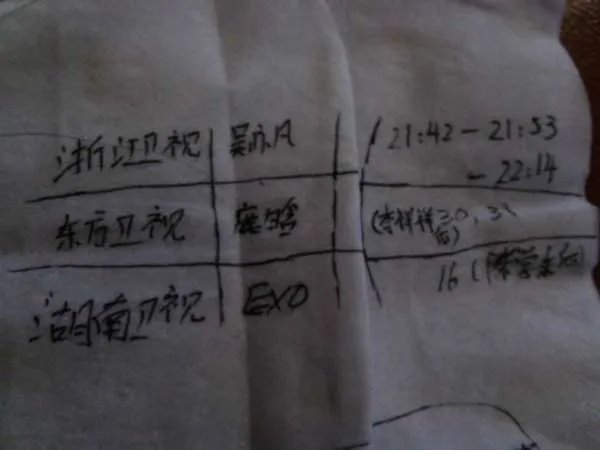 浙江卫视 吴亦凡 21:42-21:53
-22:14
东方卫视 鹿晗 (李祥祥30、31
后)
湖南卫视 EXO 16(陈学冬后)